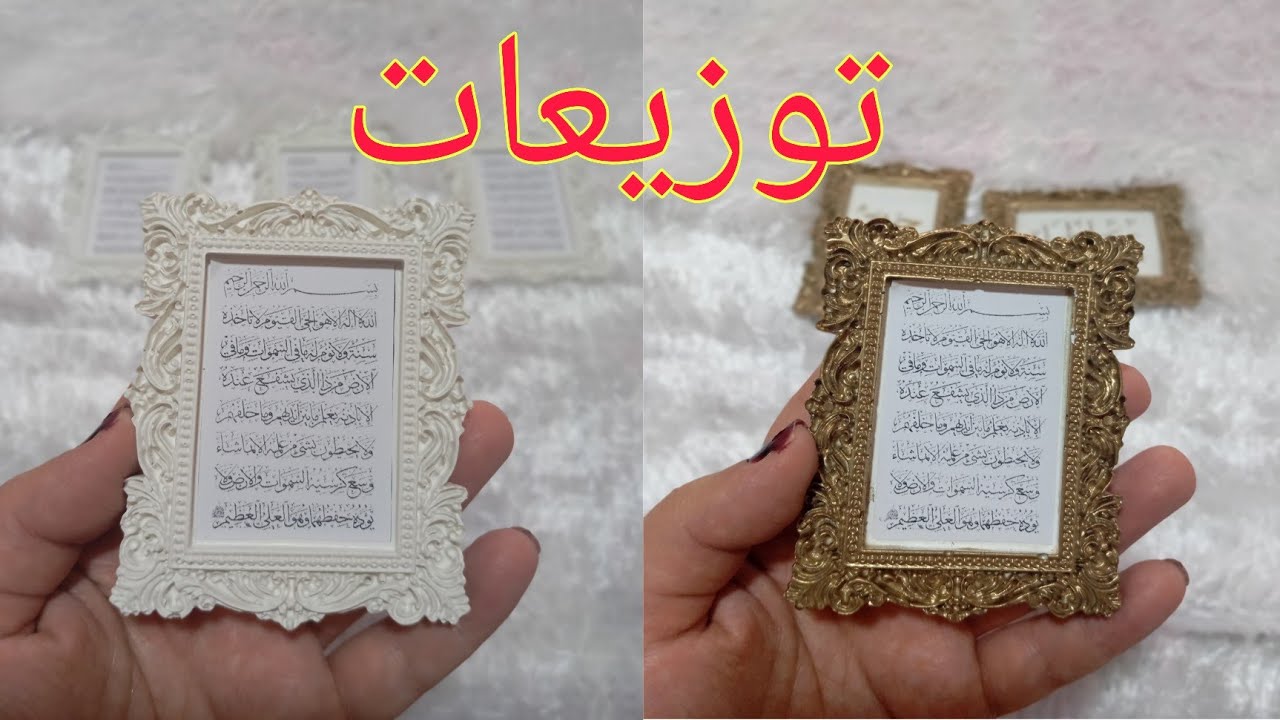 توزيعات
بِسْمِ اللهِ الرَّحْمَنِ الرَّحِيمِ
اللهُ لا إله إلا هو الحي القيوم لا تأخذه
سنة ولا نوم له ما في السموات وما في
الأرض من ذا الذي يشفع عنده
إلا بإذنه يعلم ما بين أيديهم وما خلفهم
ولا يحيطون بشيء من علمه إلا بما شاء
وسع كرسيه السموات والأرض ولا
يؤده حفظهما وهو العلي العظيم
بِسْمِ اللهِ الرَّحْمَنِ الرَّحِيمِ
اللهُ لا إله إلا هو الحي القيوم لا تأخذه
سنة ولا نوم له ما في السموات وما في
الأرض من ذا الذي يشفع عنده
إلا بإذنه يعلم ما بين أيديهم وما خلفهم
ولا يحيطون بشيء من علمه إلا بما شاء
وسع كرسيه السموات والأرض ولا
يؤده حفظهما وهو العلي العظيم